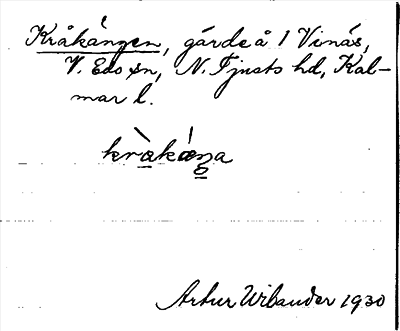 Kråkängen, gärde å 1 Vinäs,
V. Eds sn, N. Tjusts hd, Kal-
mar l.
kràkáŋa
Artur Wilander 1930